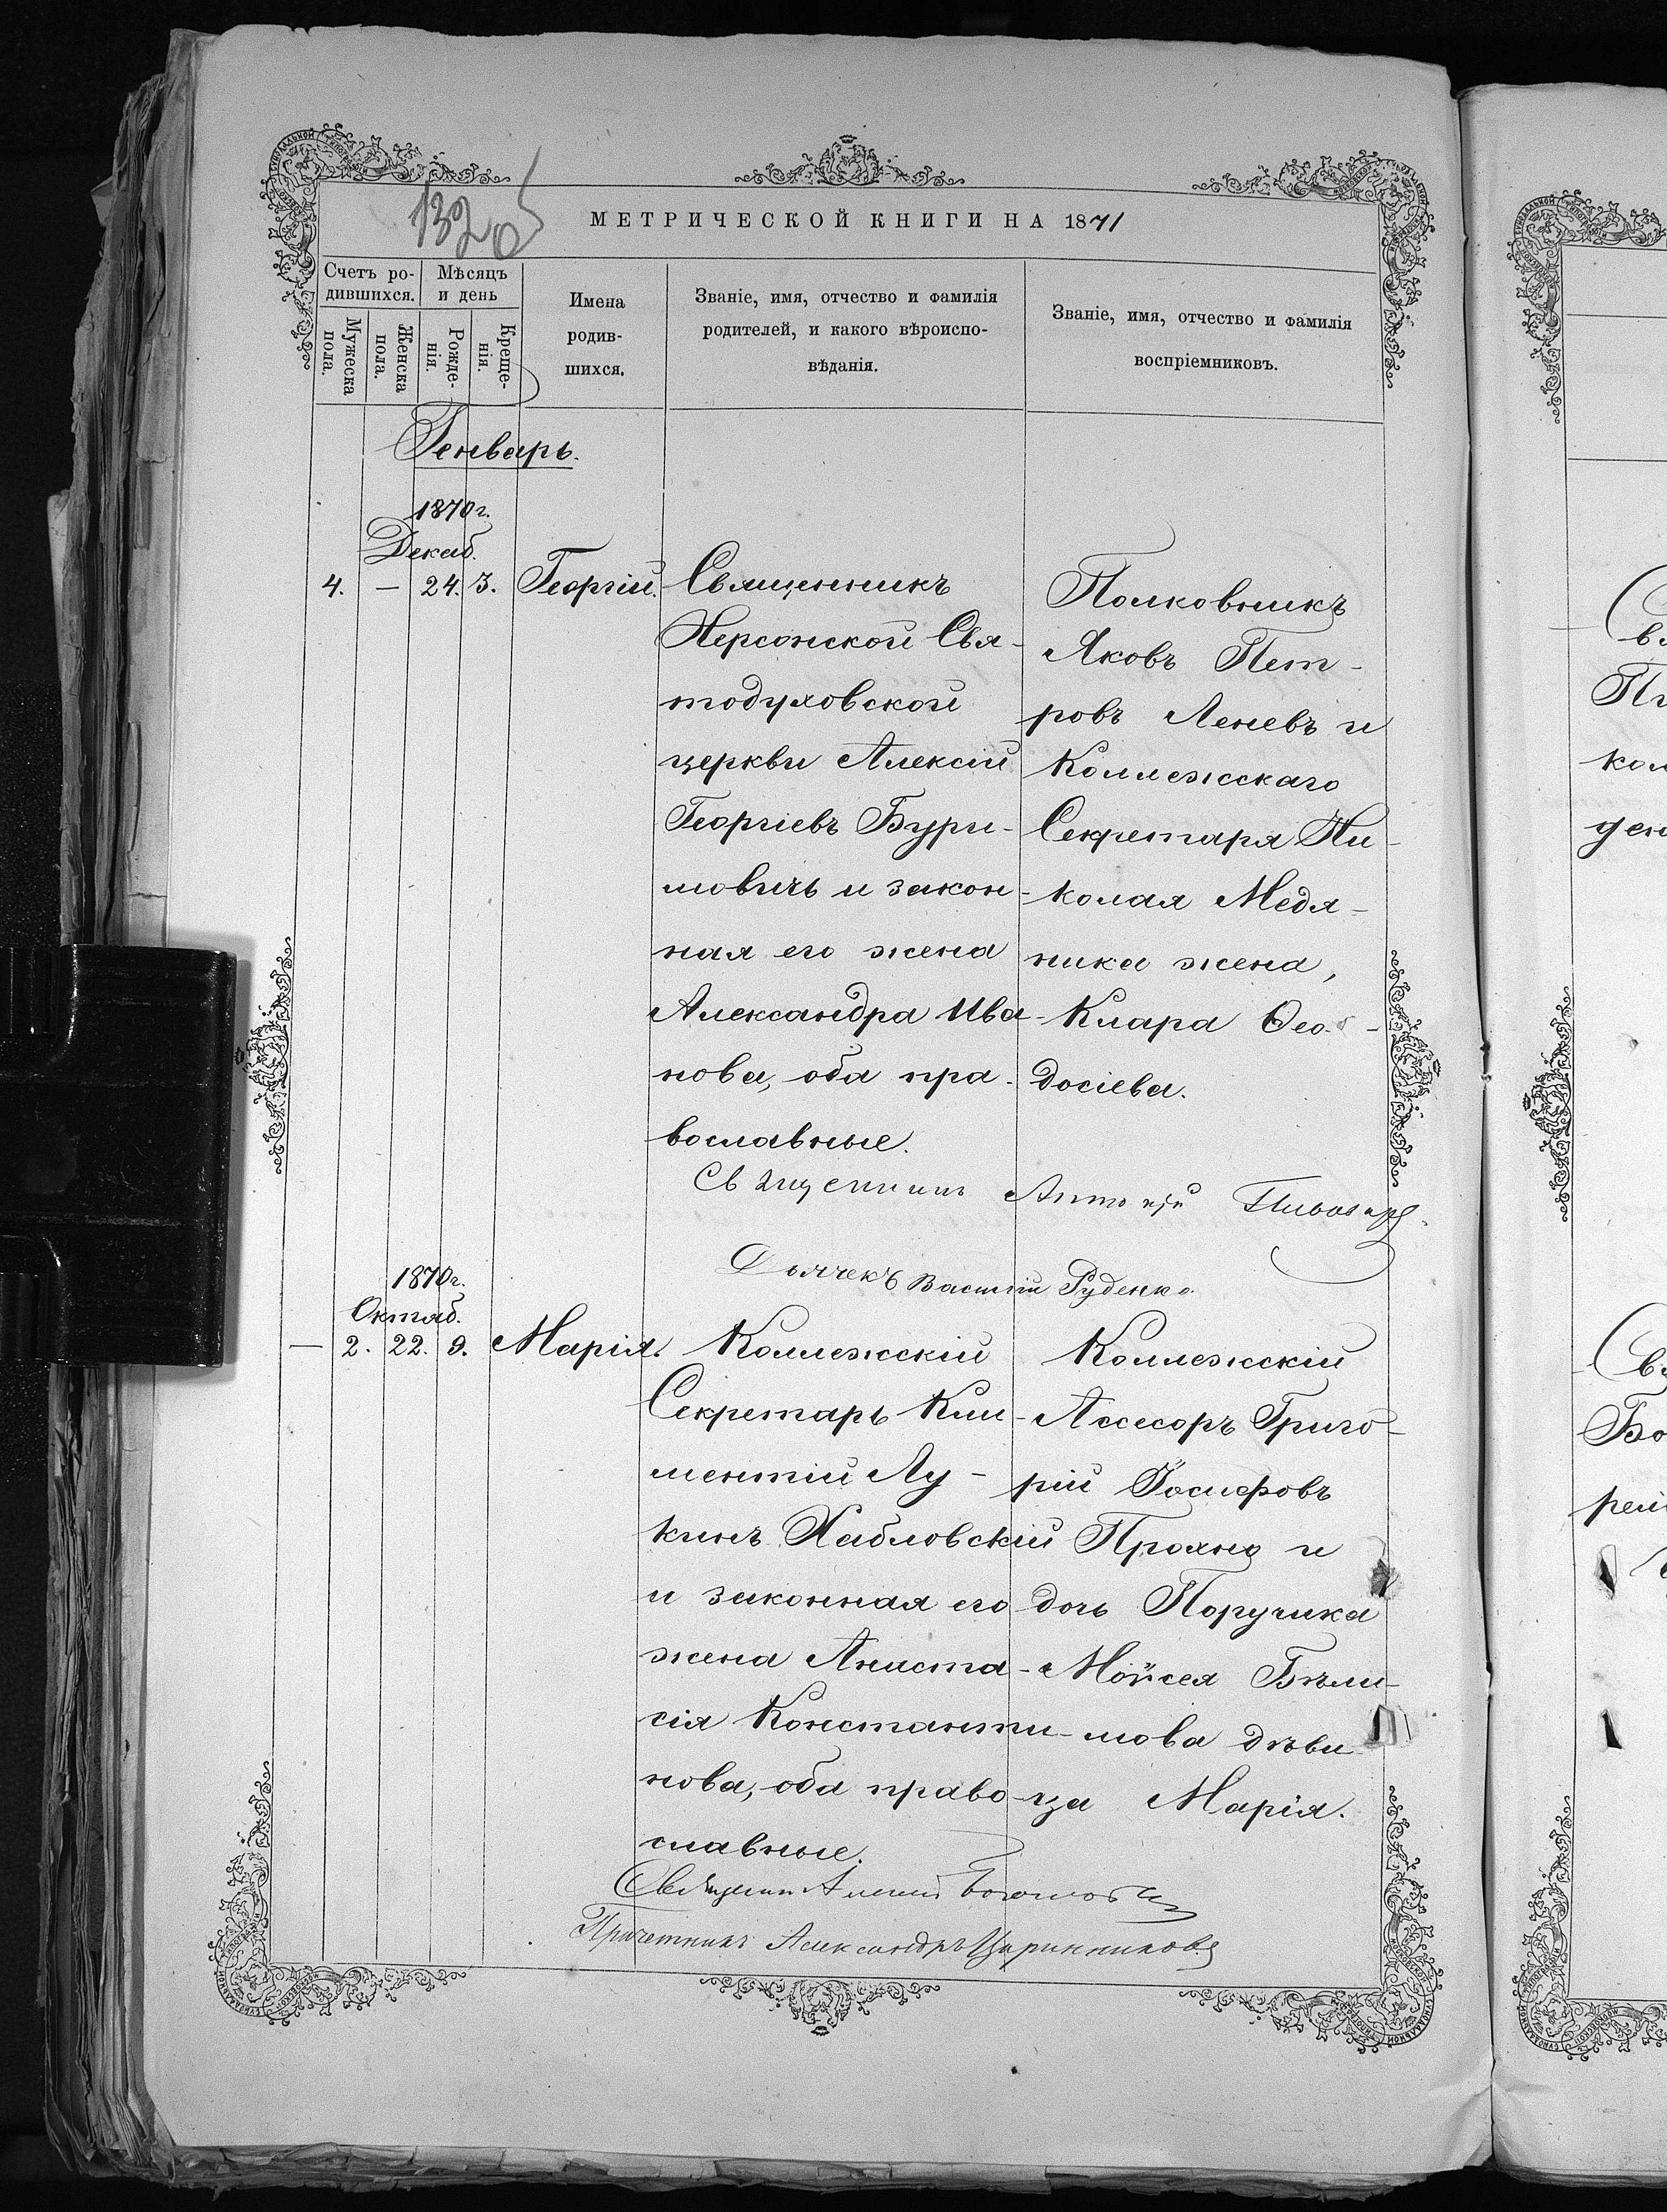 МЕТРИЧЕСКОЙ КНИГИ НА 1871
Счетъ ро-
дившихся.
Мѣсяцъ
и день
Мужеска
пола.
Женска
пола.
Рожде-
нія.
Креще-
нія.
Имена
родив-
шихся.
Званіе, имя, отчество и фамилія
родителей, и какого вѣроиспо-
вѣданія.
Званіе, имя, отчество и фамилія
воспріемниковъ.
Генварь.
1870 г.
Декаб.
4. — 24. 3. Георгій.
Священникъ
Херсонской Свя-
тодуховской
церкви Алексій
Георгіевъ Бури-
мовичъ и закон-
ная его жена
Александра Ива-
нова, оба пра-
вославные.
Полковникъ
Яковъ Пет-
ровъ Леневъ и
Коллежскаго
Секретаря Ни-
колая Медя-
ника жена,
Клара Ѳео-
досіева.
Священникъ Антоній
Дьячекъ Василій Руденко.
1870 г.
Октяб.
— 2. 22. 9. Марія.
Коллежскій
Секретарь Кли-
ментій Лу-
кинъ Хабловскій
и законная его
жена Анаста-
сія Константи-
нова, оба право-
славные.
Коллежскій
Ассесоръ Григо-
рій Іосифовъ
и
дочь Поручика
Моѵсея Бѣли-
мова дѣви-
ца Марія.
Священникъ Алексій
Причетникъ Александръ